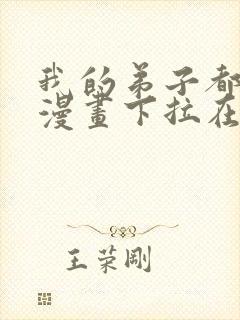 我的弟子都
漫畫下拉在
王荣剛